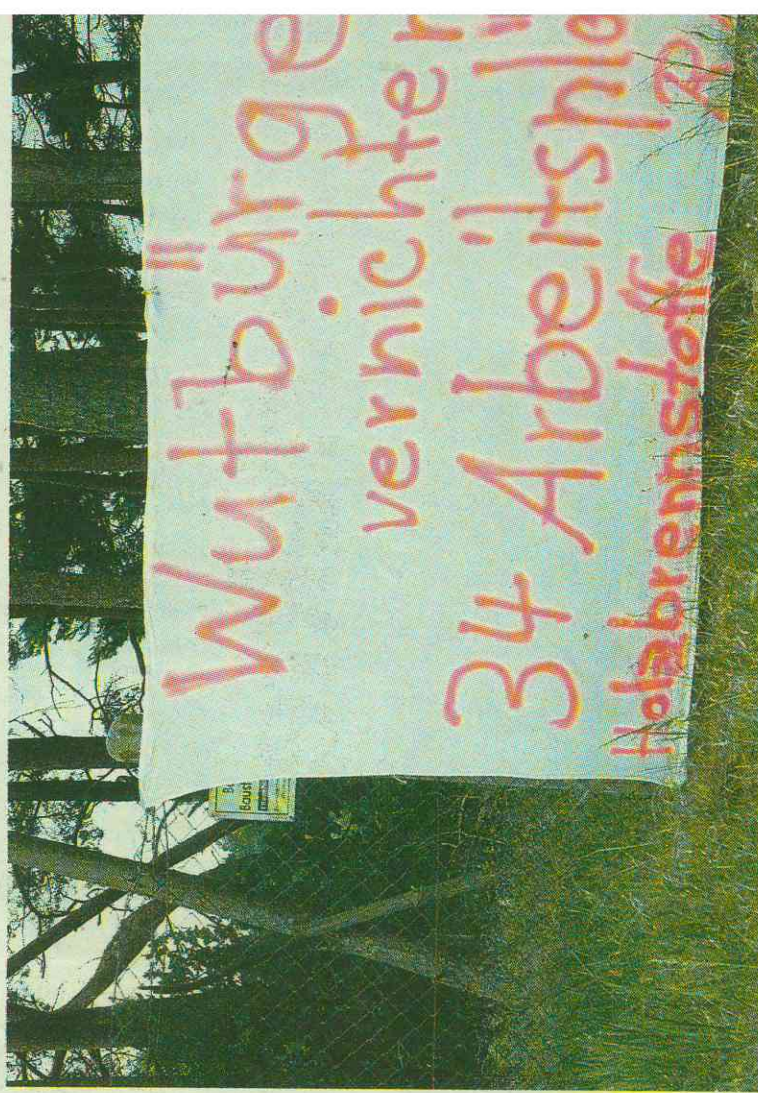 Wutbürge
vernichten
34 Arbeitsplä
Holzbrennstoffe R
Baust